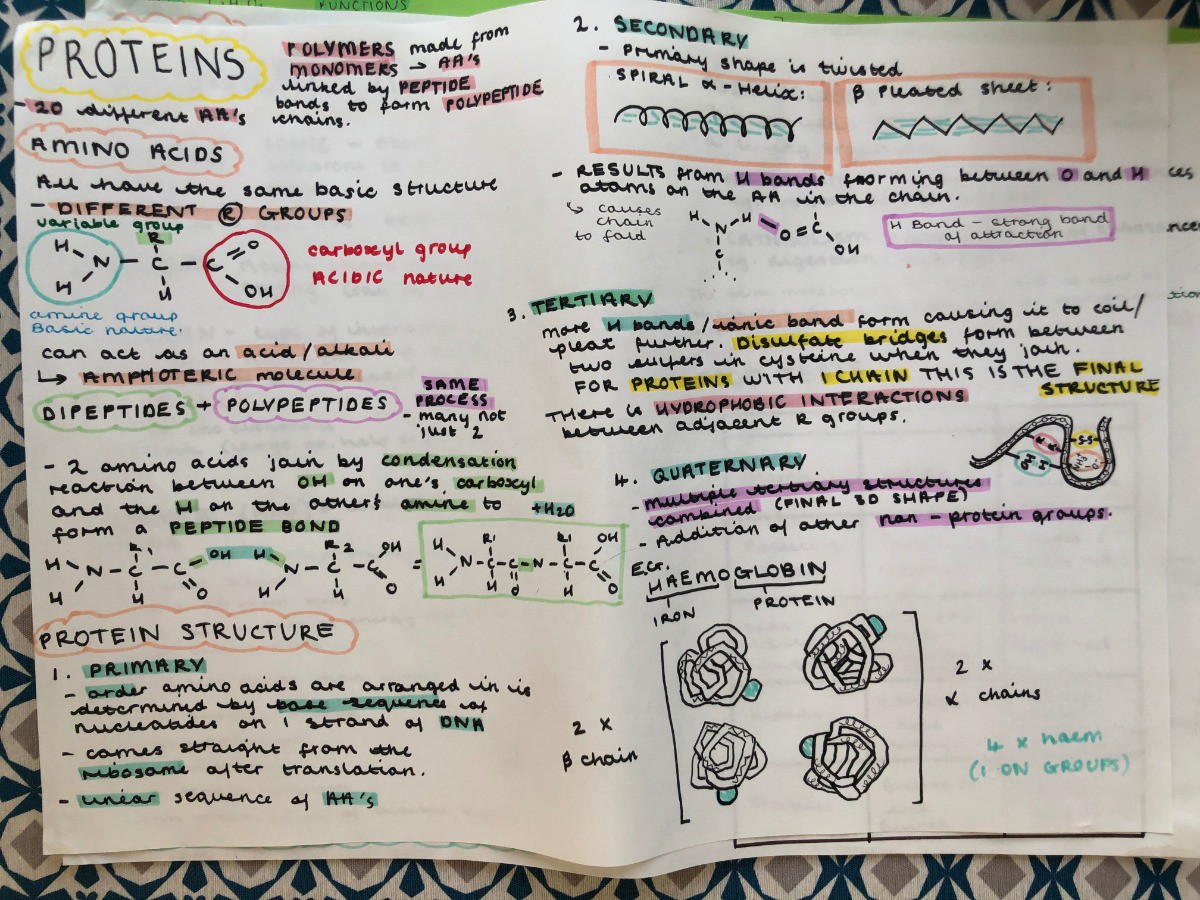 FUNCTIONS
PROTEINS
POLYMERS made from
MONOMERS → AA's
linked by PEPTIDE
bonds to form POLYPEPTIDE
chains.
- 20 different AA's
AMINO ACIDS
All have the same basic structure
- DIFFERENT R GROUPS
variable group
H H N R C H C O OH
carboxyl group
ACIDIC nature
amine group
Basic nature.
can act as an acid/alkali
↳ AMPHOTERIC molecule
DIPEPTIDES + POLYPEPTIDES
SAME
PROCESS
- many not
just 2
- 2 amino acids join by condensation
reaction between OH on one's carboxyl
and the H on the other's amine to
form a PEPTIDE BOND
+H2O
H H N R' C H C OH O H H N R2 C H C OH O = H H N R' C H C O N H R' C H C OH O
PROTEIN STRUCTURE
1. PRIMARY
- order amino acids are arranged in is
determined by base sequence of
nucleotides on 1 strand of DNA
- comes straight from the
ribosome after translation.
- linear sequence of AA's
2. SECONDARY
- Primary shape is twisted
SPIRAL α-Helix:
β Pleated sheet:
- RESULTS from H bonds forming between O and H
atoms on the AA in the chain.
↳ causes
chain
to fold
H H N C O = C C OH
H Bond - strong bond
of attraction
3. TERTIARY
more H bonds/ionic bond form causing it to coil/
pleat further. Disulfate bridges form between
two sulfers in cysteine when they join.
FOR PROTEINS WITH 1 CHAIN THIS IS THE FINAL
STRUCTURE
THERE is HYDROPHOBIC INTERACTIONS
between adjacent R groups.
S-S
4. QUATERNARY
- multiple tertiary structures
combined (FINAL 3D SHAPE)
- Addition of other non-protein groups.
E.G.
HAEMOGLOBIN
IRON
PROTEIN
2 x
β chain
2 x
α chains
4 x haem
(I ON GROUPS)